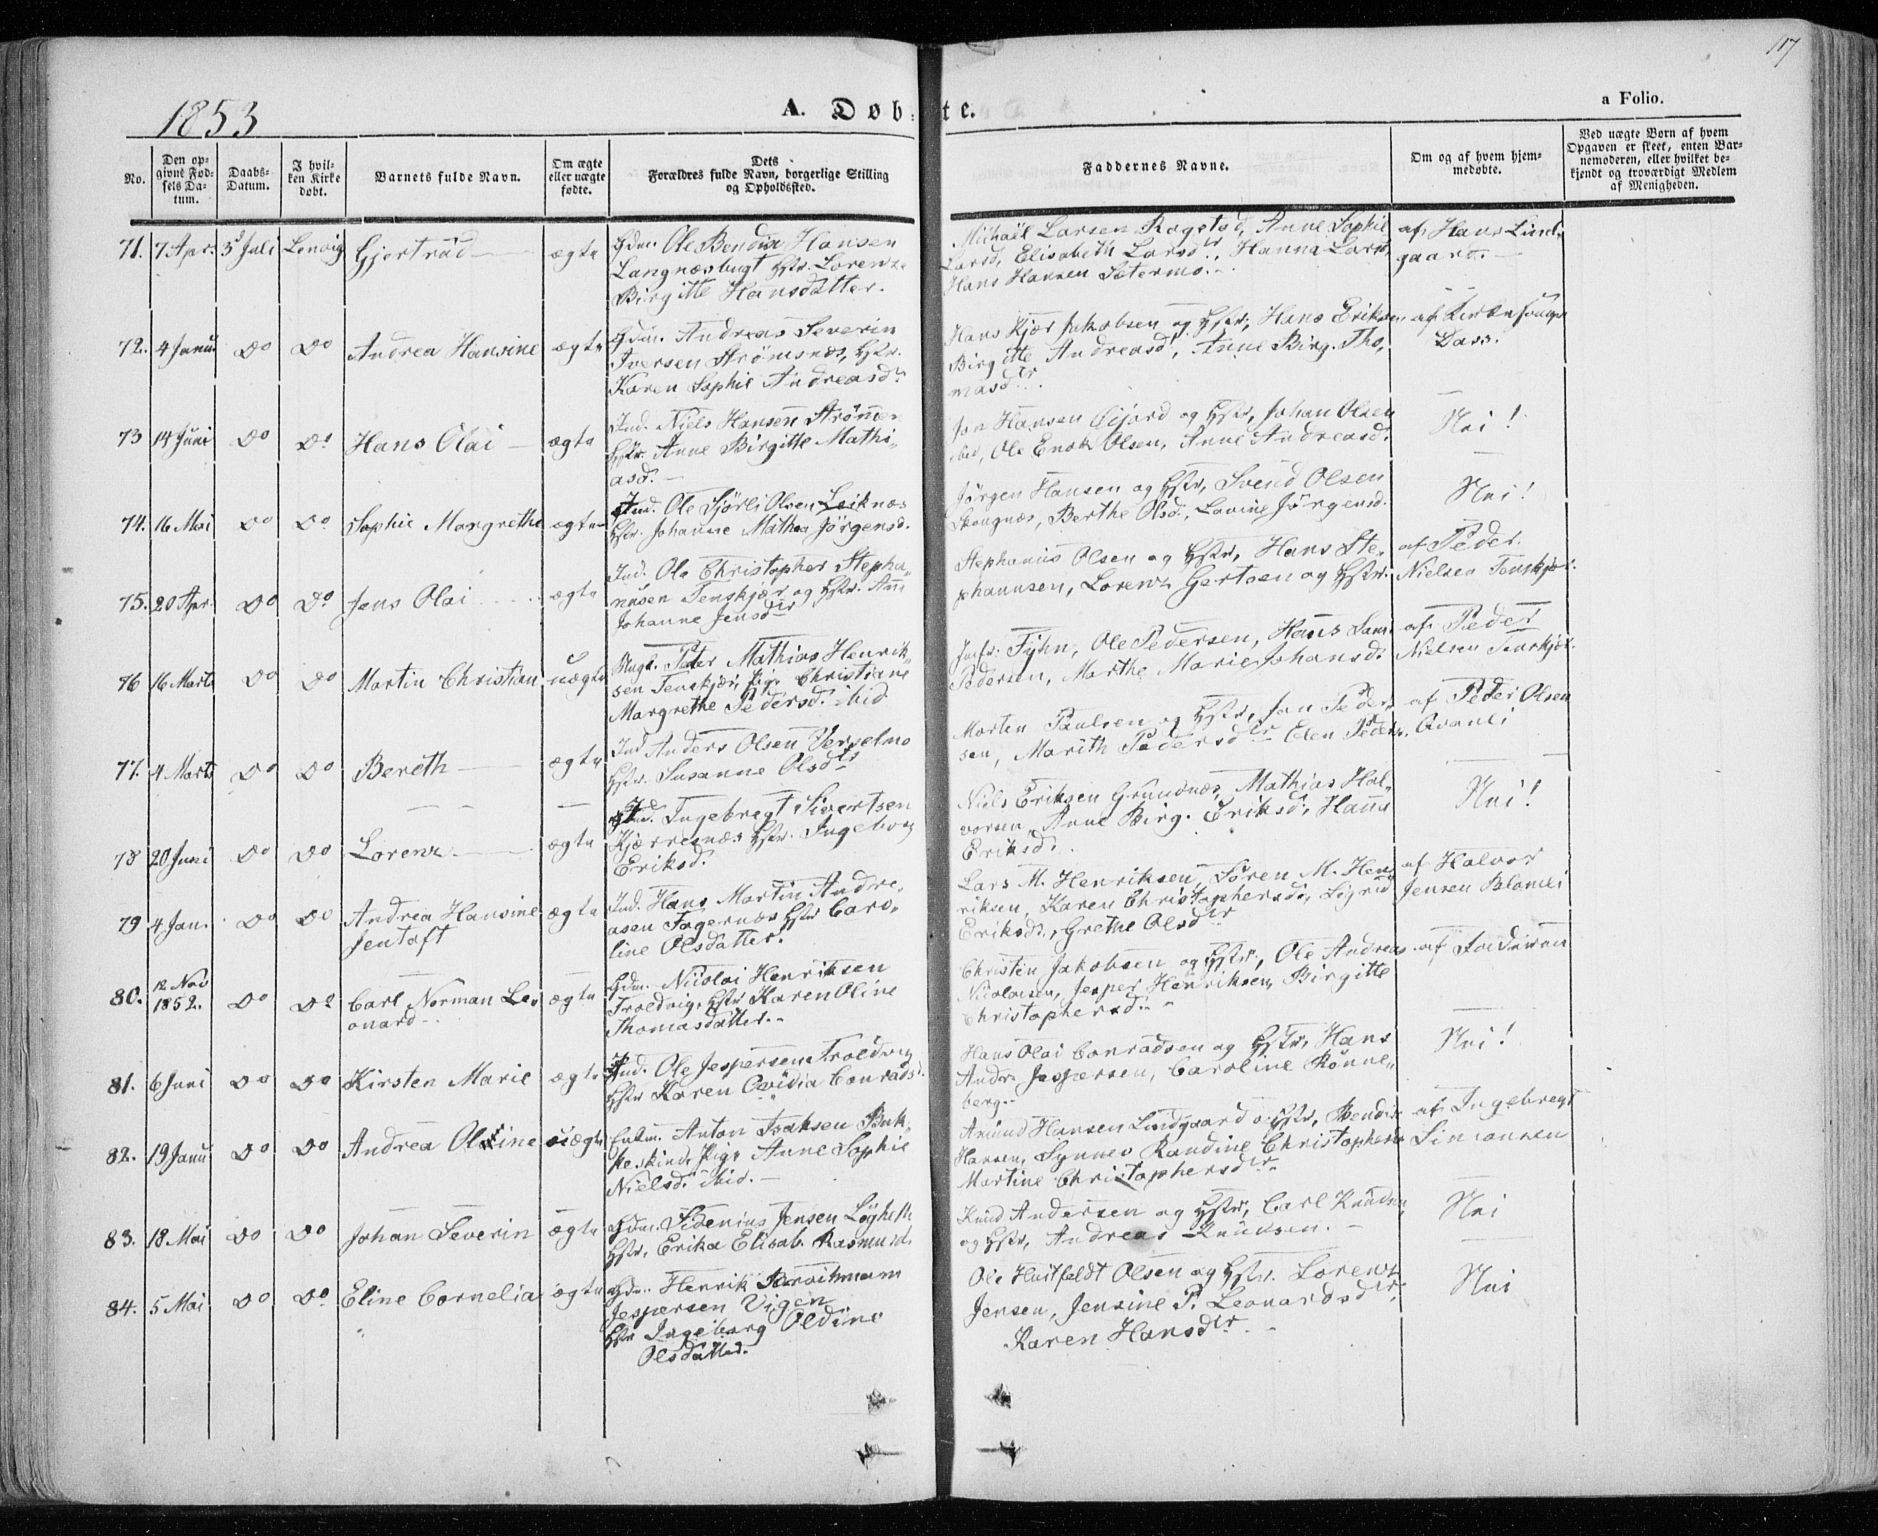 117
1853
A. Døbte.
a Folio.
No.
Den op-
givne Fød-
sels Da-
tum.
Daabs-
Datum.
I hvil-
ken Kirke
døbt.
Barnets fulde Navn.
Om ægte
eller uægte
fødte.
Dets
Forældres fulde Navn, borgerlige Stilling
og Opholdssted.
Faddernes Navne.
Om og af hvem hjem-
medøbte.
Ved uægte Børn af hvem
Opgaven er skeet, enten Bar-
nemoderen, eller hvilket be-
kjendt og troværdigt Medlem
af Menigheden.
71. 7 Apr. 3d Juli Lenvig Gjertrud ægte
Gdm. Ole Bendix Hansen
Langnæsbugt Hstr. Lorenz-
Birgitte Hansdatter.
Michaël Larsen Rogstad, Anne Sophie
Larsd, Elisabeth Larsdtr, Hanna Lars
Hans Hansen Sætermo.
af Hans Lind-
gaard.
72. 4 Janu Do Do Andrea Hansine ægte
Gdm. Andreas Severin
Iversen Strømsnæs, Hstr.
Karen Sophie Andreasdtr
Hans Kjær Jakobsen og Hstr, Hans Eriksen
Birgitte Andreasd, Anne Birg. Tho-
masdtr.
af Kirkesanger
Dass.
73 14 Juni Do Do Hans Olai ægte
Ind. Niels Hansen Strømen
Hstr. Anne Birgitte Mathi-
asd.
Jon Hansen Øijord og Hstr, Johan Olsen
ibid, Ole Enok Olsen, Anne Andreasd.
Nei!
74. 16 Mai Do Do Sophie Margrethe ægte
Ind. Ole Sjørli Olsen Leiknæs
Hstr. Johanne Mathea Jørgensd.
Jørgen Hansen og Hstr, Svend Olsen
Skougnæs, Berthe Olsd., Lovine Jørgensd.
Nei!
75. 20 Apr. Do Do Jens Olai ægte
Ind. Ole Christopher Stepha-
nusen Tenskjær og Hstr. Ane
Johanne Jensdtr
Stephanus Olsen og Hstr, Hans Ste-
phannsen, Lorenz Gertsen og Hstr.
af Peder
Nielsen Tenskjær.
76 16 Marts Do Do Martin Christian uægte
Ungk. Peter Mathias Henrik-
sen Tenskjær, Pige Christiane
Margrethe Pedersd. ibid
Jmfr. Fyhn, Ole Pedersen, Hans Lars
Pedersen, Marthe Marie Johansd.
af Peder
Nielsen Tenskjær.
77. 4 Marts Do Do Bereth ægte
Ind Anders Olsen
Hstr. Susanne Olsdtr
Morten Paulsen og Hstr, Jon Peder-
sen, Marith Pedersdtr Elen Peders.
af Peder Olsen
Qvanli
78 20 Juni Do Do Lorenz ægte
Ind. Ingebregt Sivertsen
Kjærresnæs Hstr. Ingeborg
Eriksd.
Niels Eriksen Grundnæs, Mathias Hal-
vorsen, Anne Birg. Eriksd, Hanna
Eriksd.
Nei!
79 4 Jan. Do Do Andrea Hansine
Jentoft ægte
Ind. Hans Martin Andre-
asen Fagernæs Hstr Caro-
line Olsdatter.
Lars M. Henriksen, Søren M. Hen-
riksen, Karen Christophersd, Sigrid
Eriksd., Grethe Olsdtr
af Halvor
Jensen
80. 12 Nov
1852. Do Do Carl Norman Le-
onard ægte
Gdm. Nicolai Henriksen
Troldvig, Hstr Karen Oline
Thomasdatter.
Christen Jakobsen og Hstr, Ole Andreas
Nicolaisen, Jesper Henriksen, Birgitte
Christophersd.
af Faderen
81. 6 Juni Do Do Kirsten Marie ægte
Ind. Ole Jespersen Troldvig
Hstr Karen Ovidia Conradsd.
Hans Olai Conradsen og Hstr, Hans
Andr. Jespersen, Caroline Rønne-
berg.
Nei!
82. 19 Janu Do Do Andrea Oline uægte
Enkm. Anton Isaksen Buk-
keskind, Pige Anne Sophie
Nielsd. ibid.
Amund Hansen Lindgaard og Hstr, Bendix
Hansen, Synnev Randine Christophersd
Martine Christophersdtr
af Ingebregt
Simonsen
83. 18 Mai Do Do Johan Severin ægte
Gdm. Sidenius Jensen
Hstr. Erika Elisab. Rasmusd.
Knud Andersen og Hstr, Carl Knudsen
og Hstr, Andreas Knudsen.
Nei
84. 5 Mai Do Do Eline Cornelia ægte
Gdm. Henrik
Jespersen Vigen
Hstr Ingeborg Oldine
Olsdatter.
Ole Huitfeldt Olsen og Hstr. Lorenz
Jensen, Jensine P. Leonardsdtr,
Karen Hansdtr.
Nei